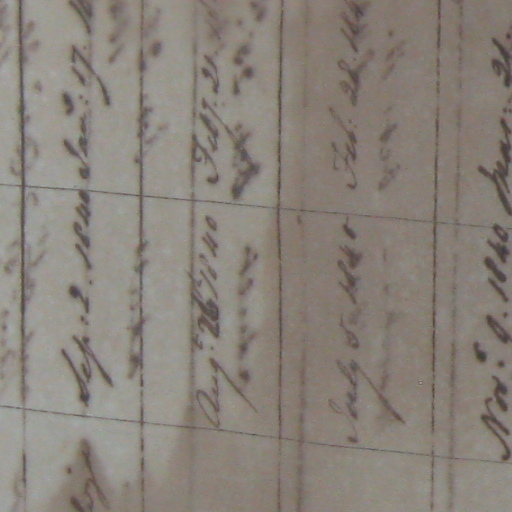 Sep: 2. 1840 Jan: 17. 18
Aug.t 26t 1840 Feby. 21. 18
July 5 1840 Feb: 28. 184
Nov.r 9. 1840 Mar: 21.